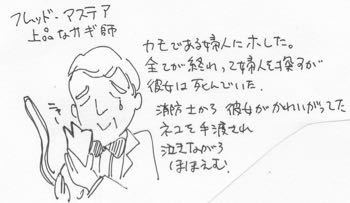 フレッド・アステア
上品なサギ師
カモである婦人にホした。
全てが終わって婦人を探すが
彼女は死んでいた。
消防士から彼女がかわいがってた
ネコを手渡され
泣きながら
ほほえむ。